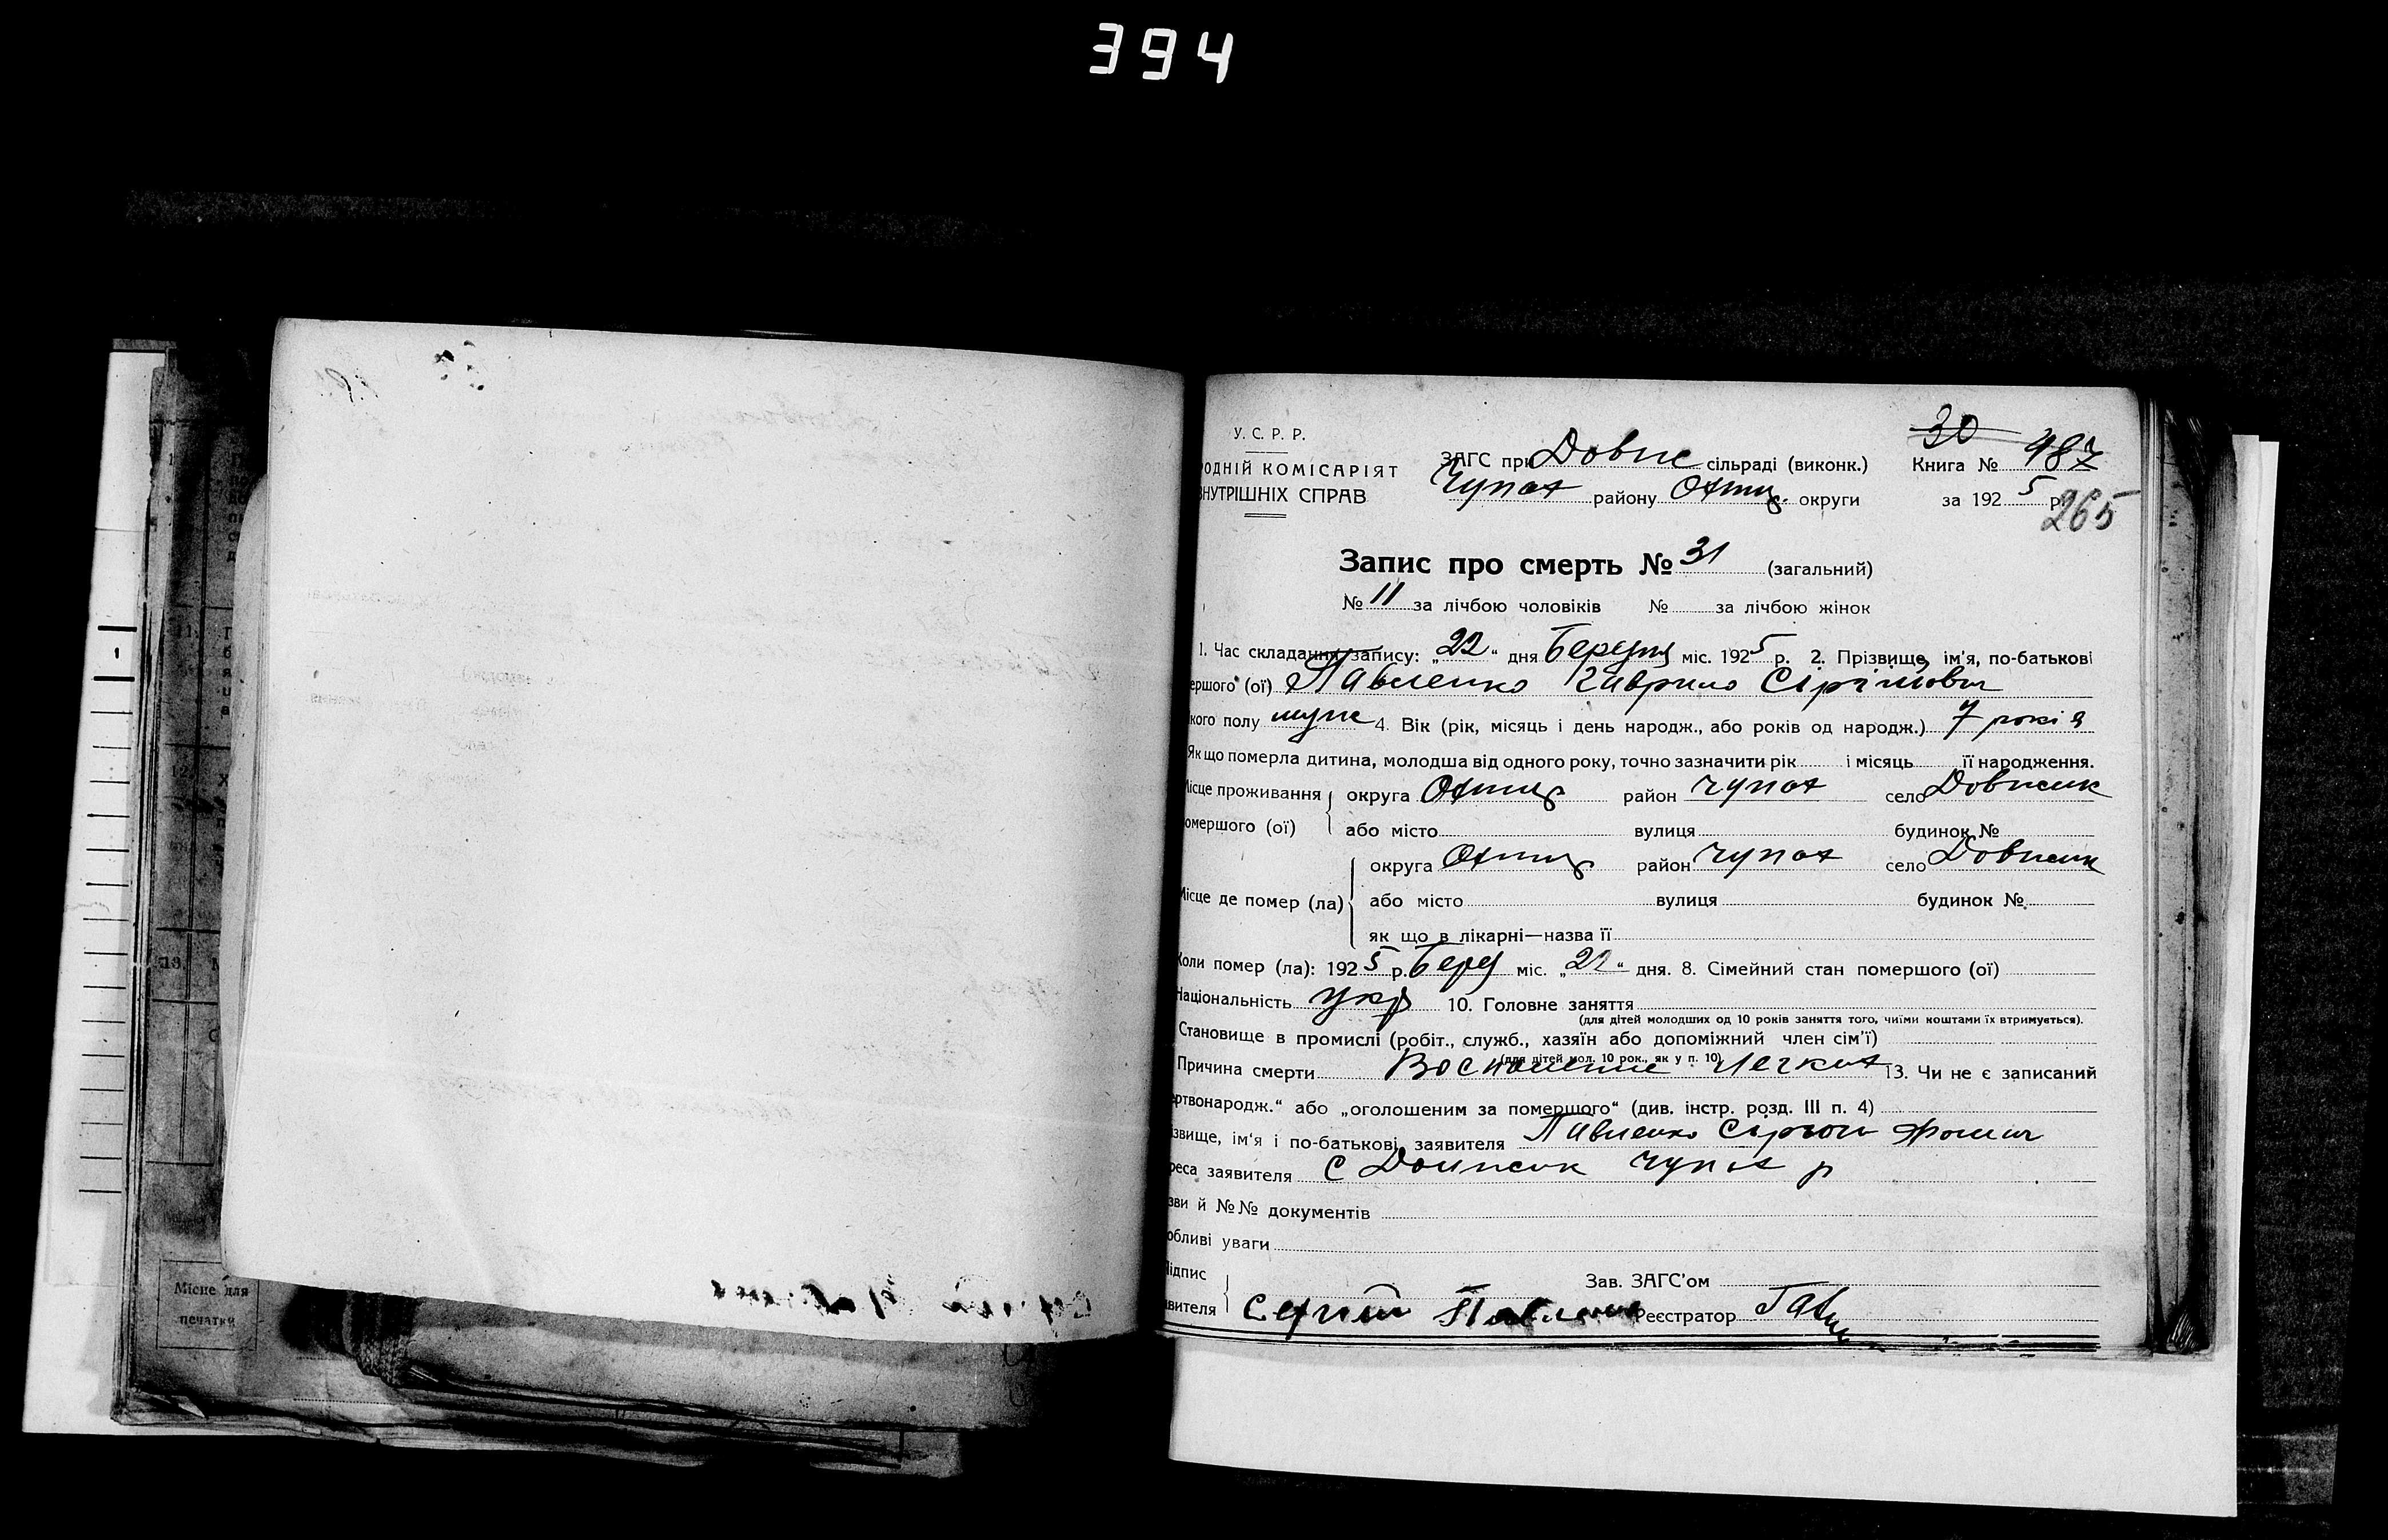 394
У. С. Р. Р.
ОДНІЙ КОМІСАРІЯТ
ВНУТРІШНІХ СПРАВ
ЗАГС при Довж сільраді (виконк.)
Чупах району Охтир. округи
30
Книга № 487
за 1925 р.
265
Запис про смерть № 31 (загальний)
№ 11 за лічбою чоловіків № за лічбою жінок
1. Час складання запису: „22“ дня Березня міс. 1925 р. 2. Прізвище, ім'я, по-батькові
ершого (ої) Павленко Гаврило
кого полу муж 4. Вік (рік, місяць і день народж., або років од народж.) 7 років
Як що померла дитина, молодша від одного року, точно зазначити рік і місяць її народження.
Місце проживання округа Охтир район Чупах село Довжик
омершого (ої) або місто вулиця будинок №
округа Охтир район Чупах село Довжик
Місце де помер (ла) або місто вулиця будинок №
як що в лікарні—назва її
Коли помер (ла): 1925 р. Берез міс. „22“ дня. 8. Сімейний стан помершого (ої)
Національність укр 10. Головне заняття
(для дітей молодших од 10 років заняття того, чиїми коштами їх втримується).
Становище в промислі (робіт., служб., хазяїн або допоміжний член сім'ї)
(для дітей мол. 10 рок., як у п. 10)
Причина смерти Воспаление Легких 13. Чи не є записаний
ертвонародж.“ або „оголошеним за помершого“ (див. інстр. розд. III п. 4)
ізвище, ім'я і по-батькові заявителя Павленко
реса заявителя с Довжик Чупах р
зви й №№ документів
обливі уваги
Підпис
Зав. ЗАГС'ом
явителя Сергий Павленко Реєстратор
Місце для
печатки